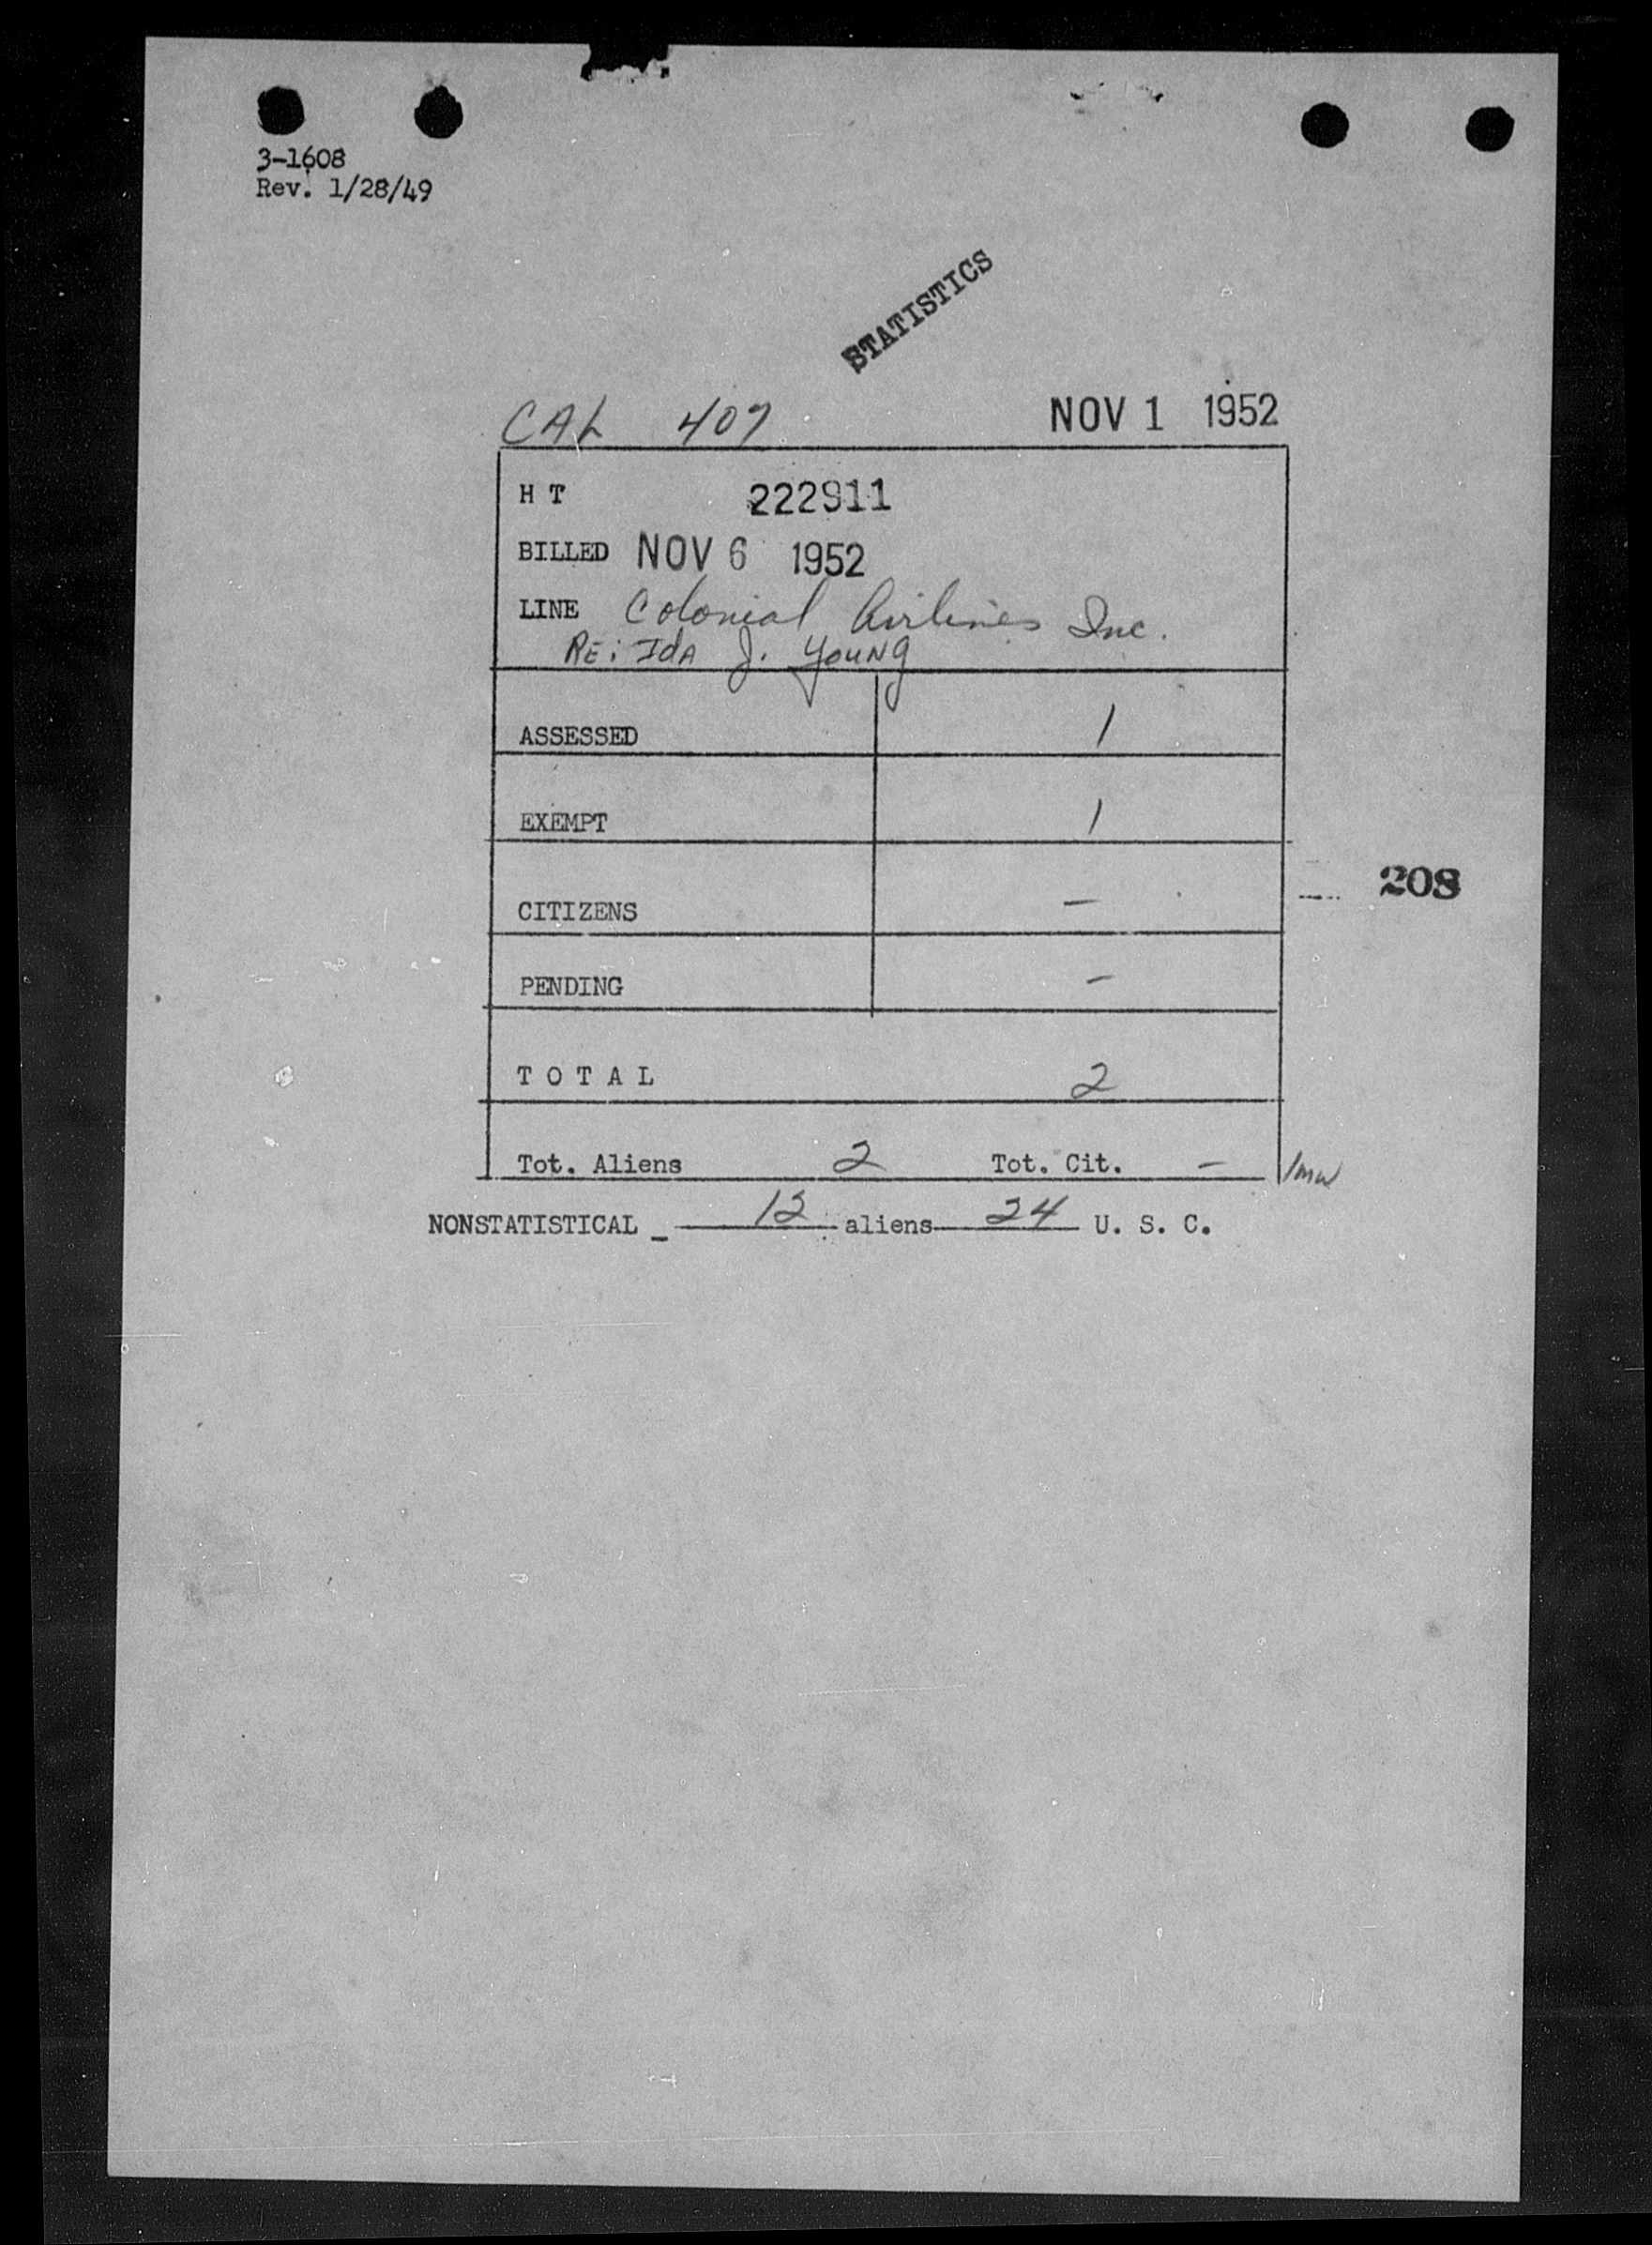 3-1608
Rev. 1/28/49
STATISTICS
CAL 407 NOV 1 1952
H T 222911
BILLED NOV 6 1952
LINE Colonial Airlines Inc.
RE: IdA J. YOUNG
ASSESSED 1
EXEMPT 1
208
CITIZENS -
PENDING -
T O T A L 2
Tot. Aliens 2 Tot. Cit. -
NONSTATISTICAL - 12 aliens 24 U. S. C.